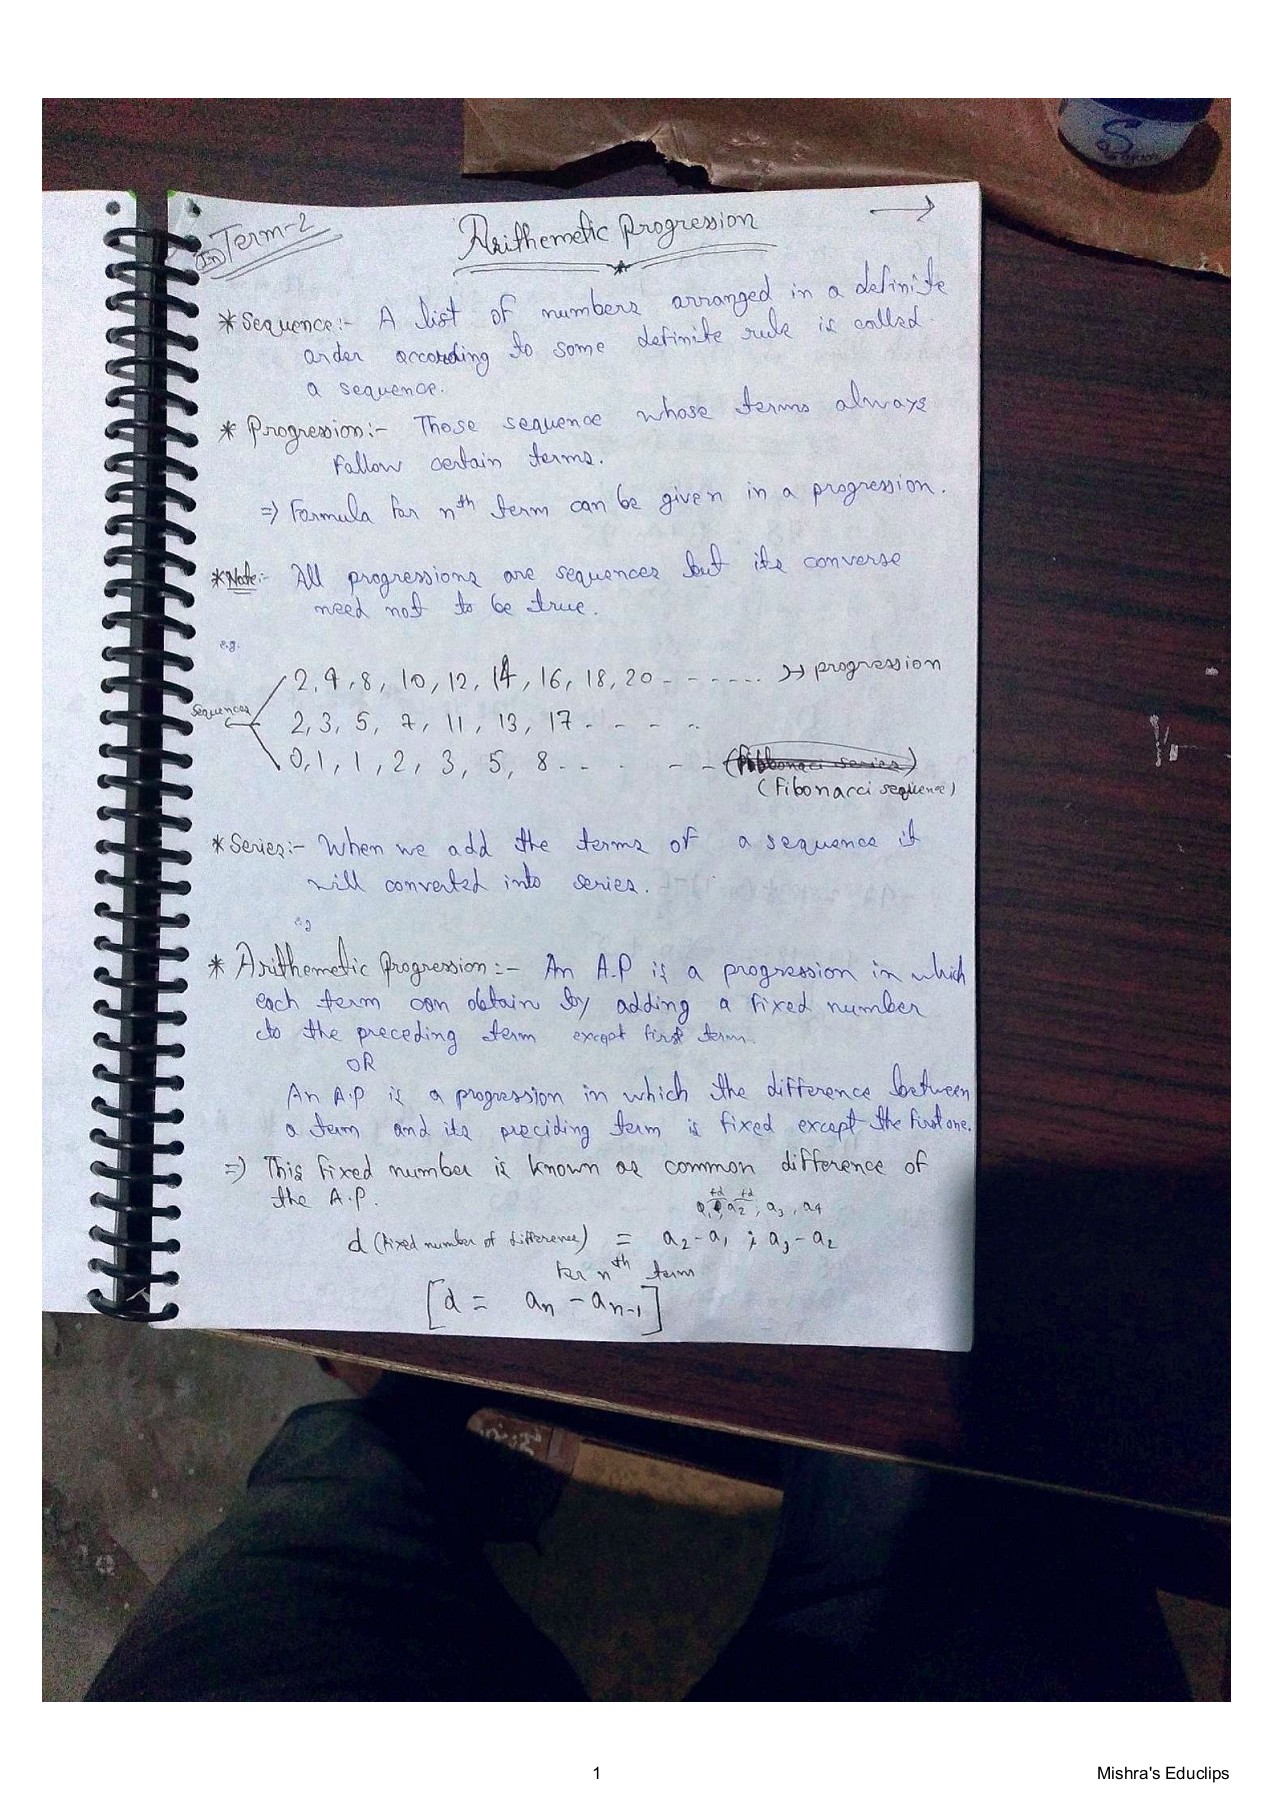 (In) Term-2
Arithemetic Progression →
* Sequence:- A list of numbers arranged in a definite
order according to some definite rule is called
a sequence.
* Progression:- Those sequence whose terms always
follow certain terms.
=> Formula for nth term can be given in a progression.
* Note:- All progressions are sequences but its converse
need not to be true.
e.g.
2, 4, 8, 10, 12, 14, 16, 18, 20 - - - .... → progression
sequences
2, 3, 5, 7, 11, 13, 17 - - - ..
0, 1, 1, 2, 3, 5, 8 .. - - - (Fibbonacci series)
(Fibonacci sequence)
* Series:- When we add the terms of a sequence it
will converted into series.
e.g
* Arithemetic Progression:- An A.P is a progression in which
each term can obtain by adding a fixed number
to the preceding term except first term.
OR
An A.P is a progression in which the difference between
a term and its preciding term is fixed except the first one.
=> This fixed number is known as common difference of
the A.P.
+d +d
a1, a2, a3, a4
d (fixed number of difference) = a2 - a1 ; a3 - a2
for nth term
[d = an - an-1]
1
Mishra's Educlips